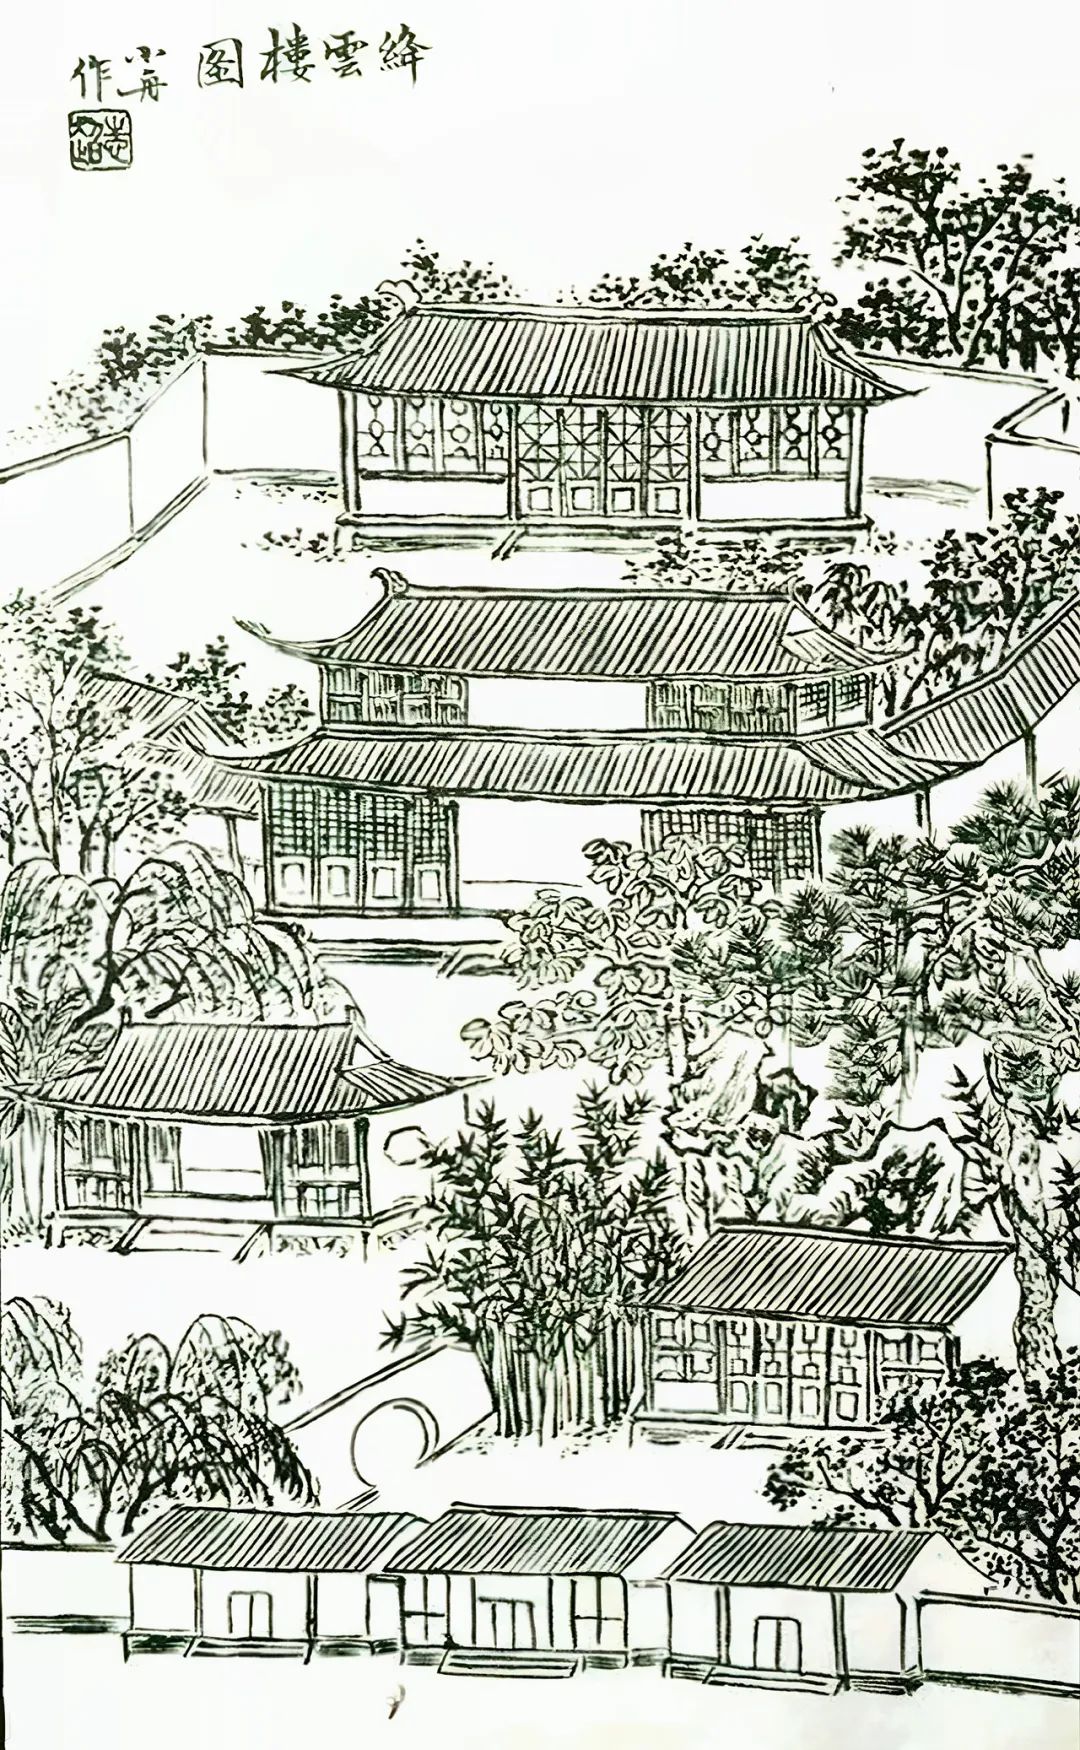 絳雲樓图
小舟作